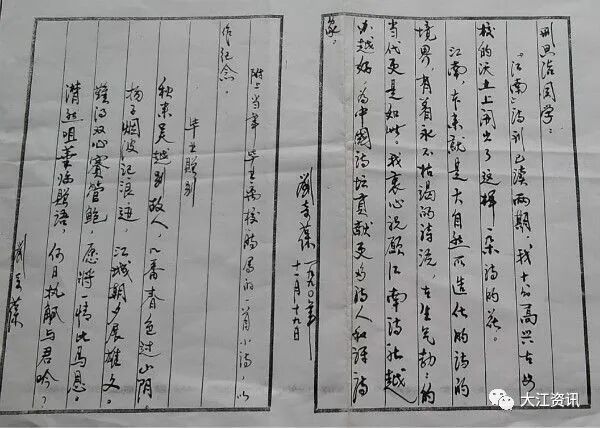 同学：
《江南》诗刊已读两期，我十分高兴在母
校的沃土上开出了这样一朵诗的花。
江南，本来就是大自然所造化的诗的
境界，有着永不枯竭的诗流，在生气勃勃的
当代更是如此。我衷心祝愿江南诗社越
办越好，为中国诗坛贡献更多诗人和诗
家。
刘奇葆 一九九〇年
十一月十九日
附上当年毕业离校时写的一首小诗，以
作纪念。
毕业赠别
秋来吴越别故人，几番春色过山阴。
扬子烟波记浪迹，江城朝夕展雄文。
难得双心赛管鲍，愿将一情比马恩。
潸然咀墨临赠语，何日执觥与君吟？
刘奇葆
大江资讯